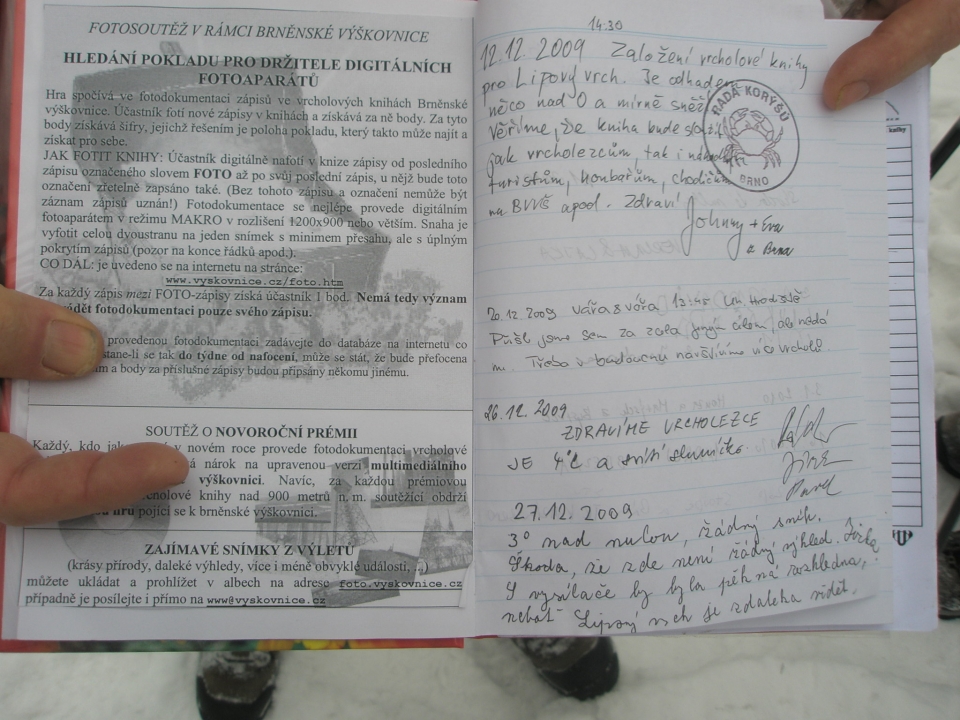 FOTOSOUTĚŽ V RÁMCI BRNĚNSKÉ VÝŠKOVNICE
HLEDÁNÍ POKLADU PRO DRŽITELE DIGITÁLNÍCH
FOTOAPARÁTŮ
Hra spočívá ve fotodokumentaci zápisů ve vrcholových knihách Brněnské
výškovnice. Účastník fotí nové zápisy v knihách a získává za ně body. Za tyto
body získává šifry, jejichž řešením je poloha pokladu, který takto může najít a
získat pro sebe.
JAK FOTIT KNIHY: Účastník digitálně nafotí v knize zápisy od posledního
zápisu označeného slovem FOTO až po svůj poslední zápis, u nějž bude toto
označení zřetelně zapsáno také. (Bez tohoto zápisu a označení nemůže být
záznam zápisů uznán!) Fotodokumentace se nejlépe provede digitálním
fotoaparátem v režimu MAKRO v rozlišení 1200x900 nebo větším. Snaha je
vyfotit celou dvoustranu na jeden snímek s minimem přesahu, ale s úplným
pokrytím zápisů (pozor na konce řádků apod.).
CO DÁL: je uvedeno se na internetu na stránce:
www.vyskovnice.cz/foto.htm
Za každý zápis mezi FOTO-zápisy získá účastník 1 bod. Nemá tedy význam
fotodokumentaci pouze svého zápisu.
provedenou fotodokumentaci zadávejte do databáze na internetu co
stane-li se tak do týdne od nafocení, může se stát, že bude přefocena
a body za příslušné zápisy budou připsány někomu jinému.
SOUTĚŽ O NOVOROČNÍ PRÉMII
Každý, kdo v novém roce provede fotodokumentaci vrcholové
nárok na upravenou verzi multimediálního
výškovnici. Navíc, za každou prémiovou
vrcholové knihy nad 900 metrů n. m. soutěžící obdrží
hru pojící se k brněnské výškovnici.
ZAJÍMAVÉ SNÍMKY Z VÝLETŮ
(krásy přírody, daleké výhledy, více i méně obvyklé události, ..)
můžete ukládat a prohlížet v albech na adrese foto.vyskovnice.cz
případně je posílejte i přímo na www@vyskovnice.cz
14:30
12.12.2009 Založení vrcholové knihy
pro Lipový vrch. Je odhadem
něco nad 0 a mírně sněží
Věříme, že kniha bude sloužit
jak vrcholezcům, tak i
turistům, houbařům, chodičům
na BVVŠ apod. Zdraví
Johnny + Eva
z Brna
RADA KORÝŠŮ
BRNO
20.12.2009 13:45
Přišli jsme sem za zcela jiným cílem, ale nedá
Třeba v budoucnu navštívíme více vrcholů.
26.12.2009
ZDRAVÍME VRCHOLEZCE
JE 4°C a svítí sluníčko
Jirka
Pavel
27.12.2009
3° nad nulou, žádný sníh.
Škoda, že zde není žádný výhled.
S vysílače by byla pěkná rozhledna,
neboť Lipový vrch je zdaleka vidět.